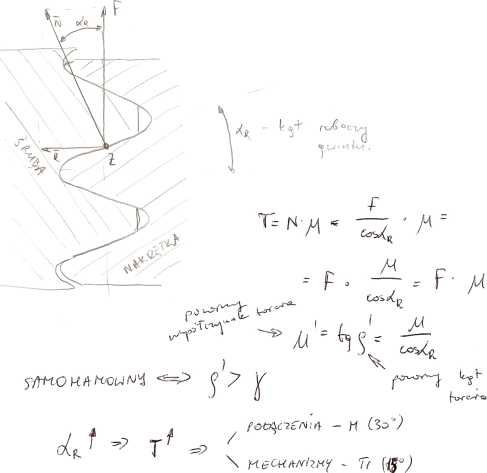 N̄ αR F̄
ŚRUBA
R̄ Z
NAKRĘTKA
αR - kąt roboczy
gwintu.
T = N · μ = F / cosαR · μ =
= F · μ / cosαR = F · μ
pozorny
współczynnik tarcia
μ' = tg ρ' = μ / cosαR
pozorny kąt
tarcia
SAMOHAMOWNY ⇔ ρ' > γ
αR ↑ ⇒ T ↑ ⇒
POŁĄCZENIA - M (30°)
MECHANIZMY - Tr (15°)